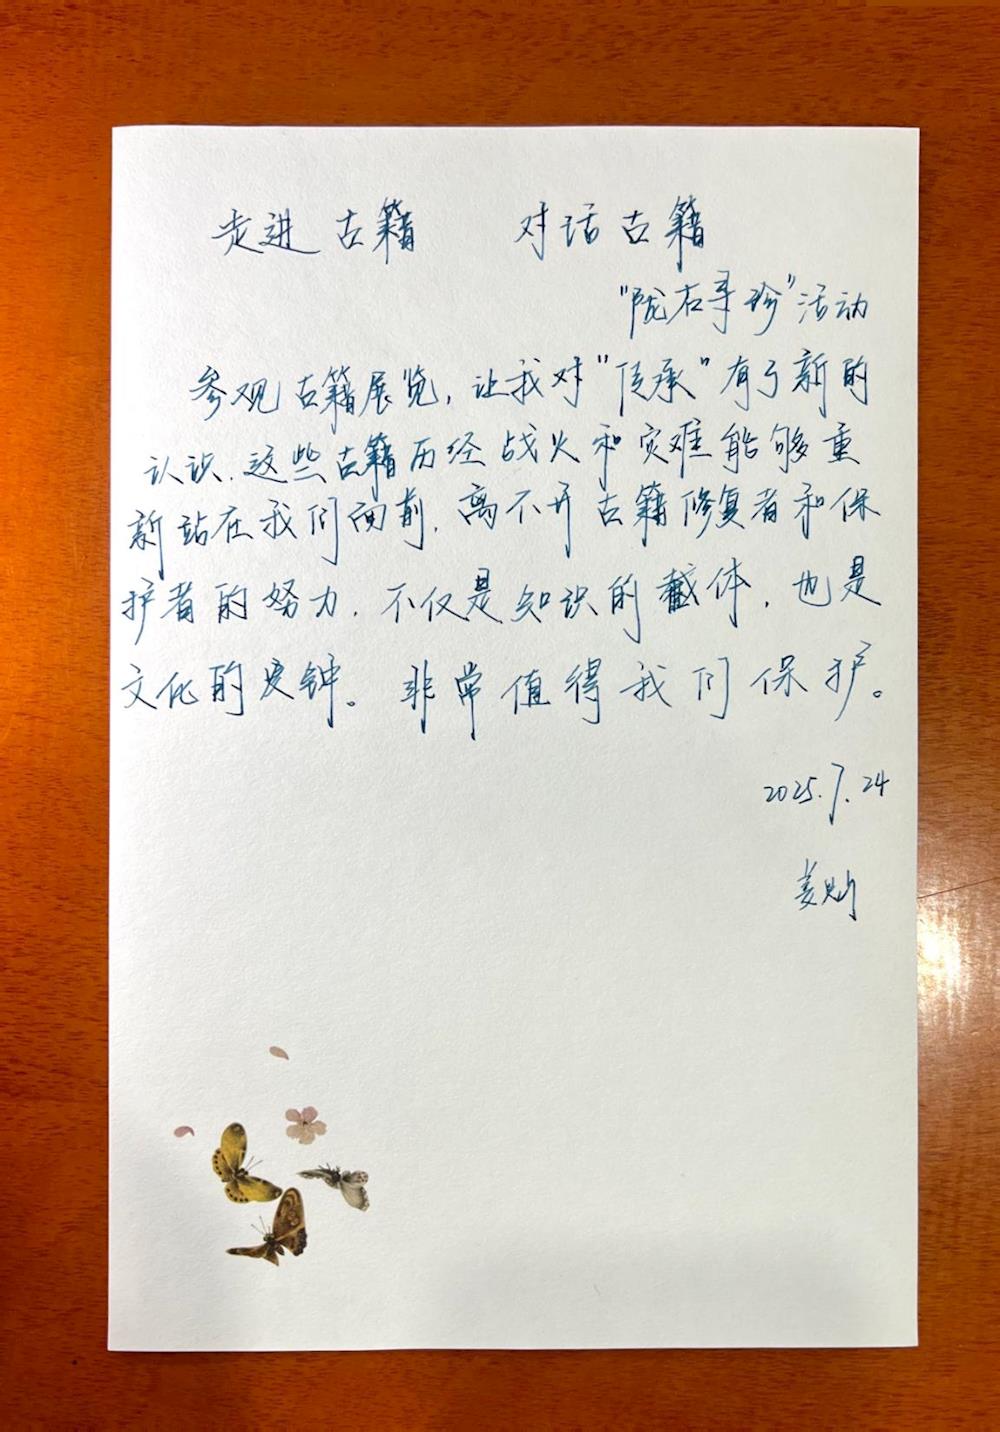 走进古籍 对话古籍
"陇右寻珍"活动
参观古籍展览，让我对"传承"有了新的
认识.这些古籍历经战火和灾难能够重
新站在我们面前，离不开古籍修复者和保
护者的努力，不仅是知识的载体，也是
文化的 钟。非常值得我们保护。
2025.7.24
姜灿